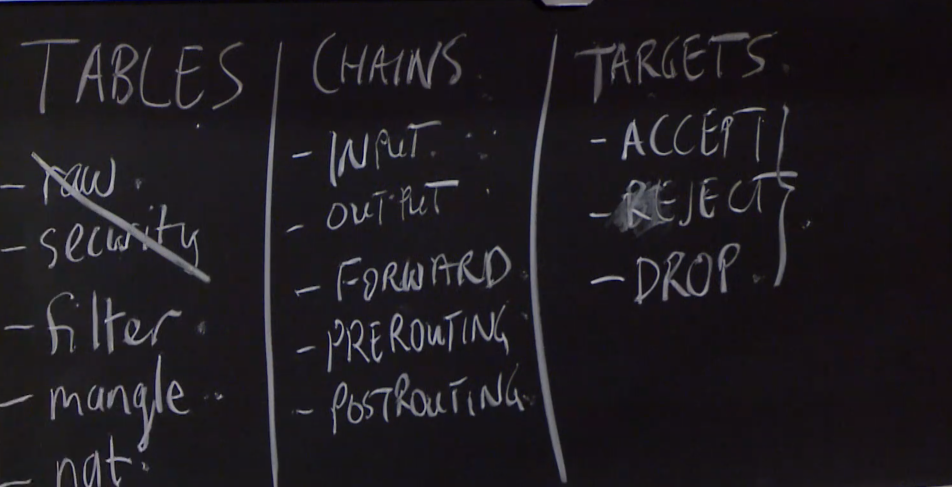 TABLES
- raw
- security
- filter
- mangle
- nat
CHAINS
- INPUT
- OUTPUT
- FORWARD
- PREROUTING
- POSTROUTING
TARGETS
- ACCEPT
- REJECT
- DROP